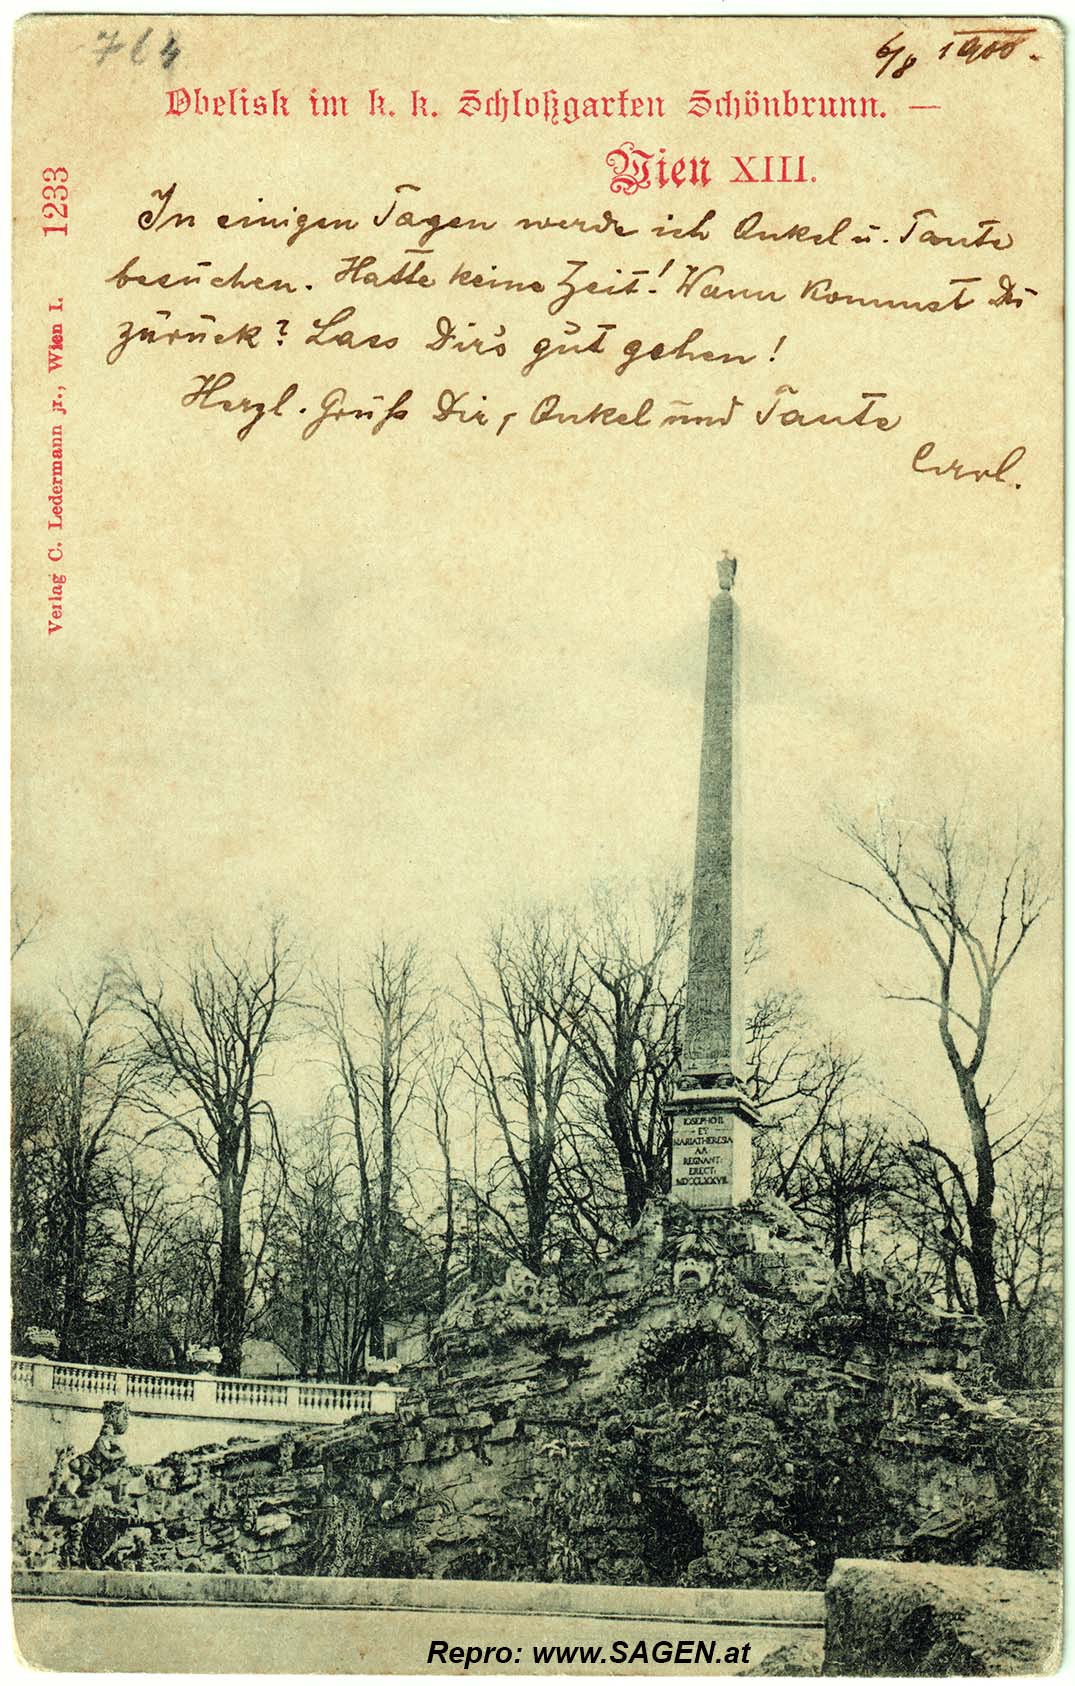 764
6/8 1900.
Obelisk im k. k. Schloßgarten Schönbrunn. —
Wien XIII.
In einigen Tagen werde ich Onkel u. Tante
besuchen. Hatte keine Zeit! Wann kommst Du
zurück? Lass Dir's gut gehen!
Herzl. Gruß Dir, Onkel und Tante
Carl.
Verlag C. Ledermann jr., Wien I. 1233
IOSEPHO II.
ET
MARIA THERESIA
AA
REGNANT.
ERECT.
MDCCLXXVII
Repro: www.SAGEN.at